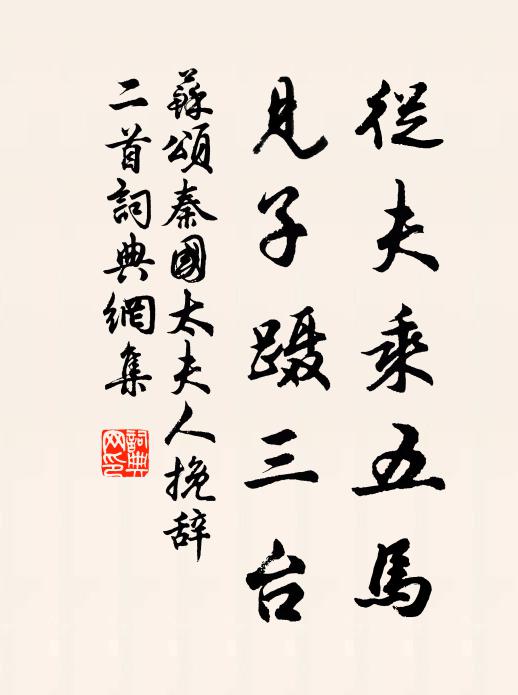 從夫乘五馬
見子蹑三台
蘇頌秦國太夫人挽辞
二首詞典網集
詞典
网印